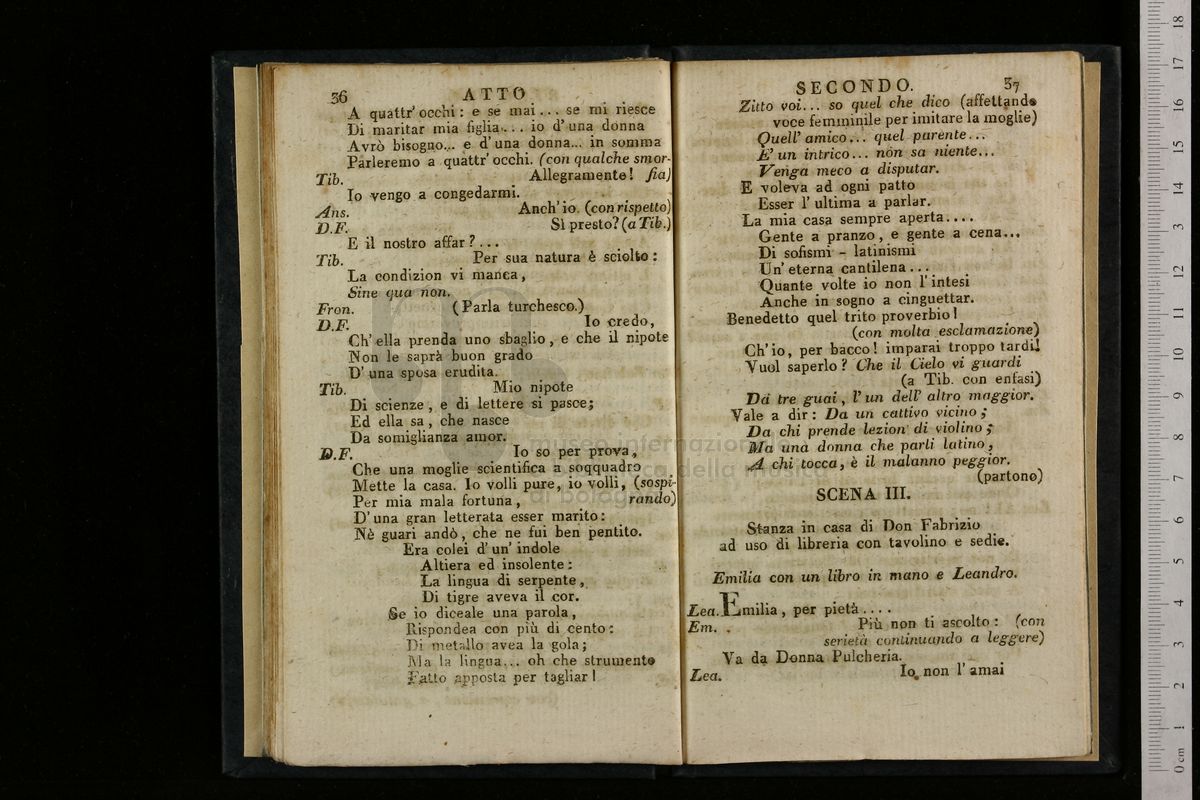 36
ATTO
A quattr' occhi: e se mai... se mi riesce
Di maritar mia figlia... io d'una donna
Avrò bisogno... e d'una donna... in somma
Parleremo a quattr' occhi. (con qualche smor-
Tib. Allegramente! fia)
Io vengo a congedarmi.
Ans. Anch'io. (con rispetto)
D.F. Sì presto? (a Tib.)
E il nostro affar?...
Tib. Per sua natura è sciolto:
La condizion vi manca,
Sine qua non.
Fron. (Parla turchesco.)
D.F. Io credo,
Ch' ella prenda uno sbaglio, e che il nipote
Non le saprà buon grado
D' una sposa erudita.
Tib. Mio nipote
Di scienze, e di lettere si pasce;
Ed ella sa, che nasce
Da somiglianza amor.
D.F. Io so per prova,
Che una moglie scientifica a soqquadro
Mette la casa. Io volli pure, io volli, (sospi-
Per mia mala fortuna, rando)
D'una gran letterata esser marito:
Nè guari andò, che ne fui ben pentito.
Era colei d'un' indole
Altiera ed insolente:
La lingua di serpente,
Di tigre aveva il cor.
Se io diceale una parola,
Rispondea con più di cento:
Di metallo avea la gola;
Ma la lingua... oh che strumento
Fatto apposta per tagliar!
SECONDO.
37
Zitto voi... so quel che dico (affettando
voce femminile per imitare la moglie)
Quell' amico... quel parente...
E' un intrico... non sa niente...
Venga meco a disputar.
E voleva ad ogni patto
Esser l' ultima a parlar.
La mia casa sempre aperta....
Gente a pranzo, e gente a cena...
Di sofismi - latinismi
Un' eterna cantilena...
Quante volte io non l' intesi
Anche in sogno a cinguettar.
Benedetto quel trito proverbio!
(con molta esclamazione)
Ch'io, per bacco! imparai troppo tardi!
Vuol saperlo? Che il Cielo vi guardi
(a Tib. con enfasi)
Da tre guai, l' un dell' altro maggior.
Vale a dir: Da un cattivo vicino;
Da chi prende lezion di violino;
Ma una donna che parli latino,
A chi tocca, è il malanno peggior.
(partono)
SCENA III.
Stanza in casa di Don Fabrizio
ad uso di libreria con tavolino e sedie.
Emilia con un libro in mano e Leandro.
Lea. Emilia, per pietà....
Em. Più non ti ascolto: (con
serietà continuando a leggere)
Va da Donna Pulcheria.
Lea. Io non l' amai
museo internazionale
della musica
di bologna